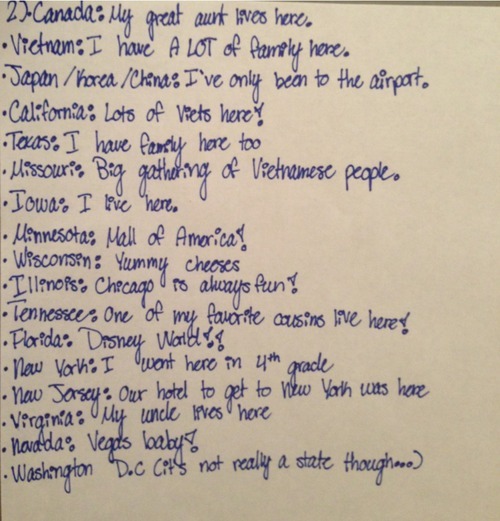 2).•Canada: My great aunt lives here.
•Vietnam: I have A LOT of family here.
•Japan/Korea/China: I've only been to the airport.
•California: Lots of Viets here!
•Texas: I have family here too
•Missouri: Big gathering of Vietnamese people.
•Iowa: I live here.
•Minnesota: Mall of America!
•Wisconsin: Yummy cheeses
•Illinois: Chicago is always fun!
•Tennessee: One of my favorite cousins live here!
•Florida: Disney World!!
•New York: I went here in 4th grade
•New Jersey: Our hotel to get to New York was here
•Virginia: My uncle lives here
•Nevada: Vegas baby!
•Washington D.C (it's not really a state though...)